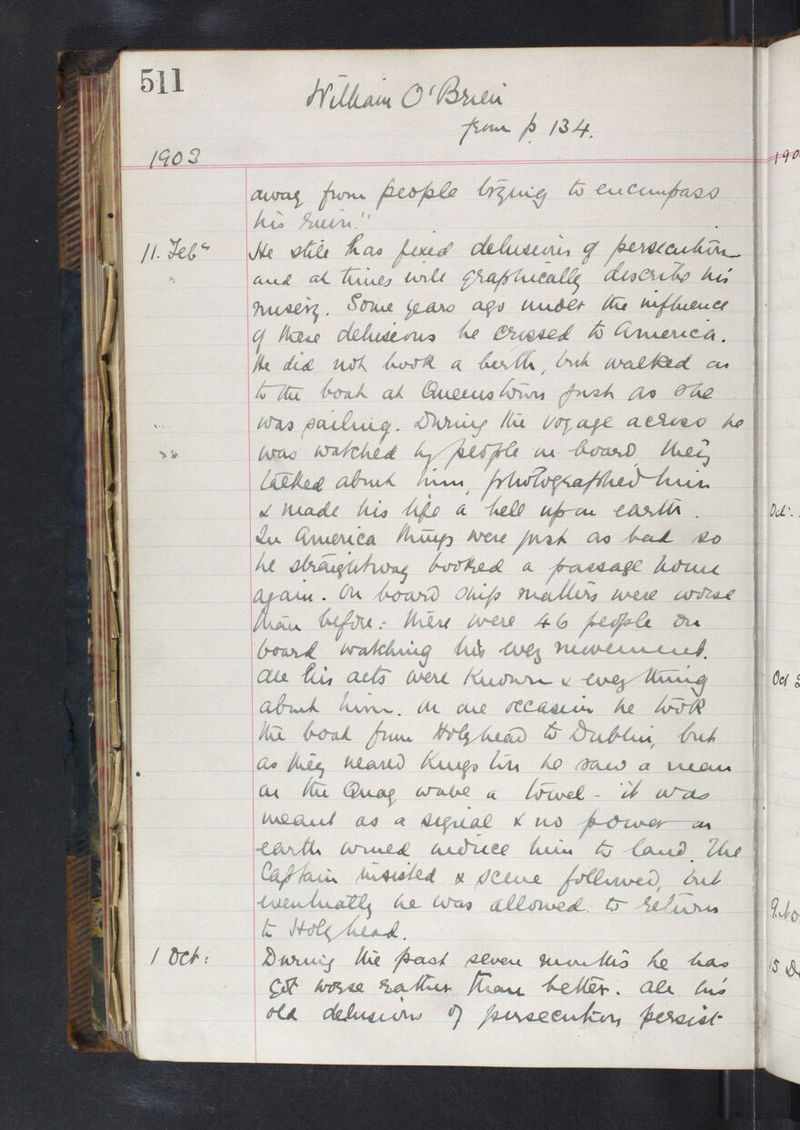 511
William O'Brien
from p. 134.
1903
190
away from people trying to encompass
his ruin."
11. Feby
He still has fixed delusions of persecution
and at times will graphically describe his
misery. Some years ago under the influence
of these delusions he crossed to America.
He did not book a berth, but walked on
to the boat at Queenstown just as she
was sailing. During the voyage across he
was watched by people on board, they
talked about him, photographed him
& made his life a hell upon earth.
Oct:
In America things were just as bad so
he straightway booked a passage home
again. On board ship matters were worse
than before: there were 46 people on
board watching his every movement.
All his acts were known & every thing
Oct 3
about him. On one occasion he took
the boat from Holyhead to Dublin, but
as they neared Kingstown he saw a man
on the Quay wave a towel - it was
meant as a signal & no power on
earth would induce him to land. The
Captain insisted & scene followed, but
eventually he was allowed to return
9. No
to Holyhead.
1 Oct:
During the past seven months he has
15 De
got worse rather than better. All his
old delusions of persecution persist